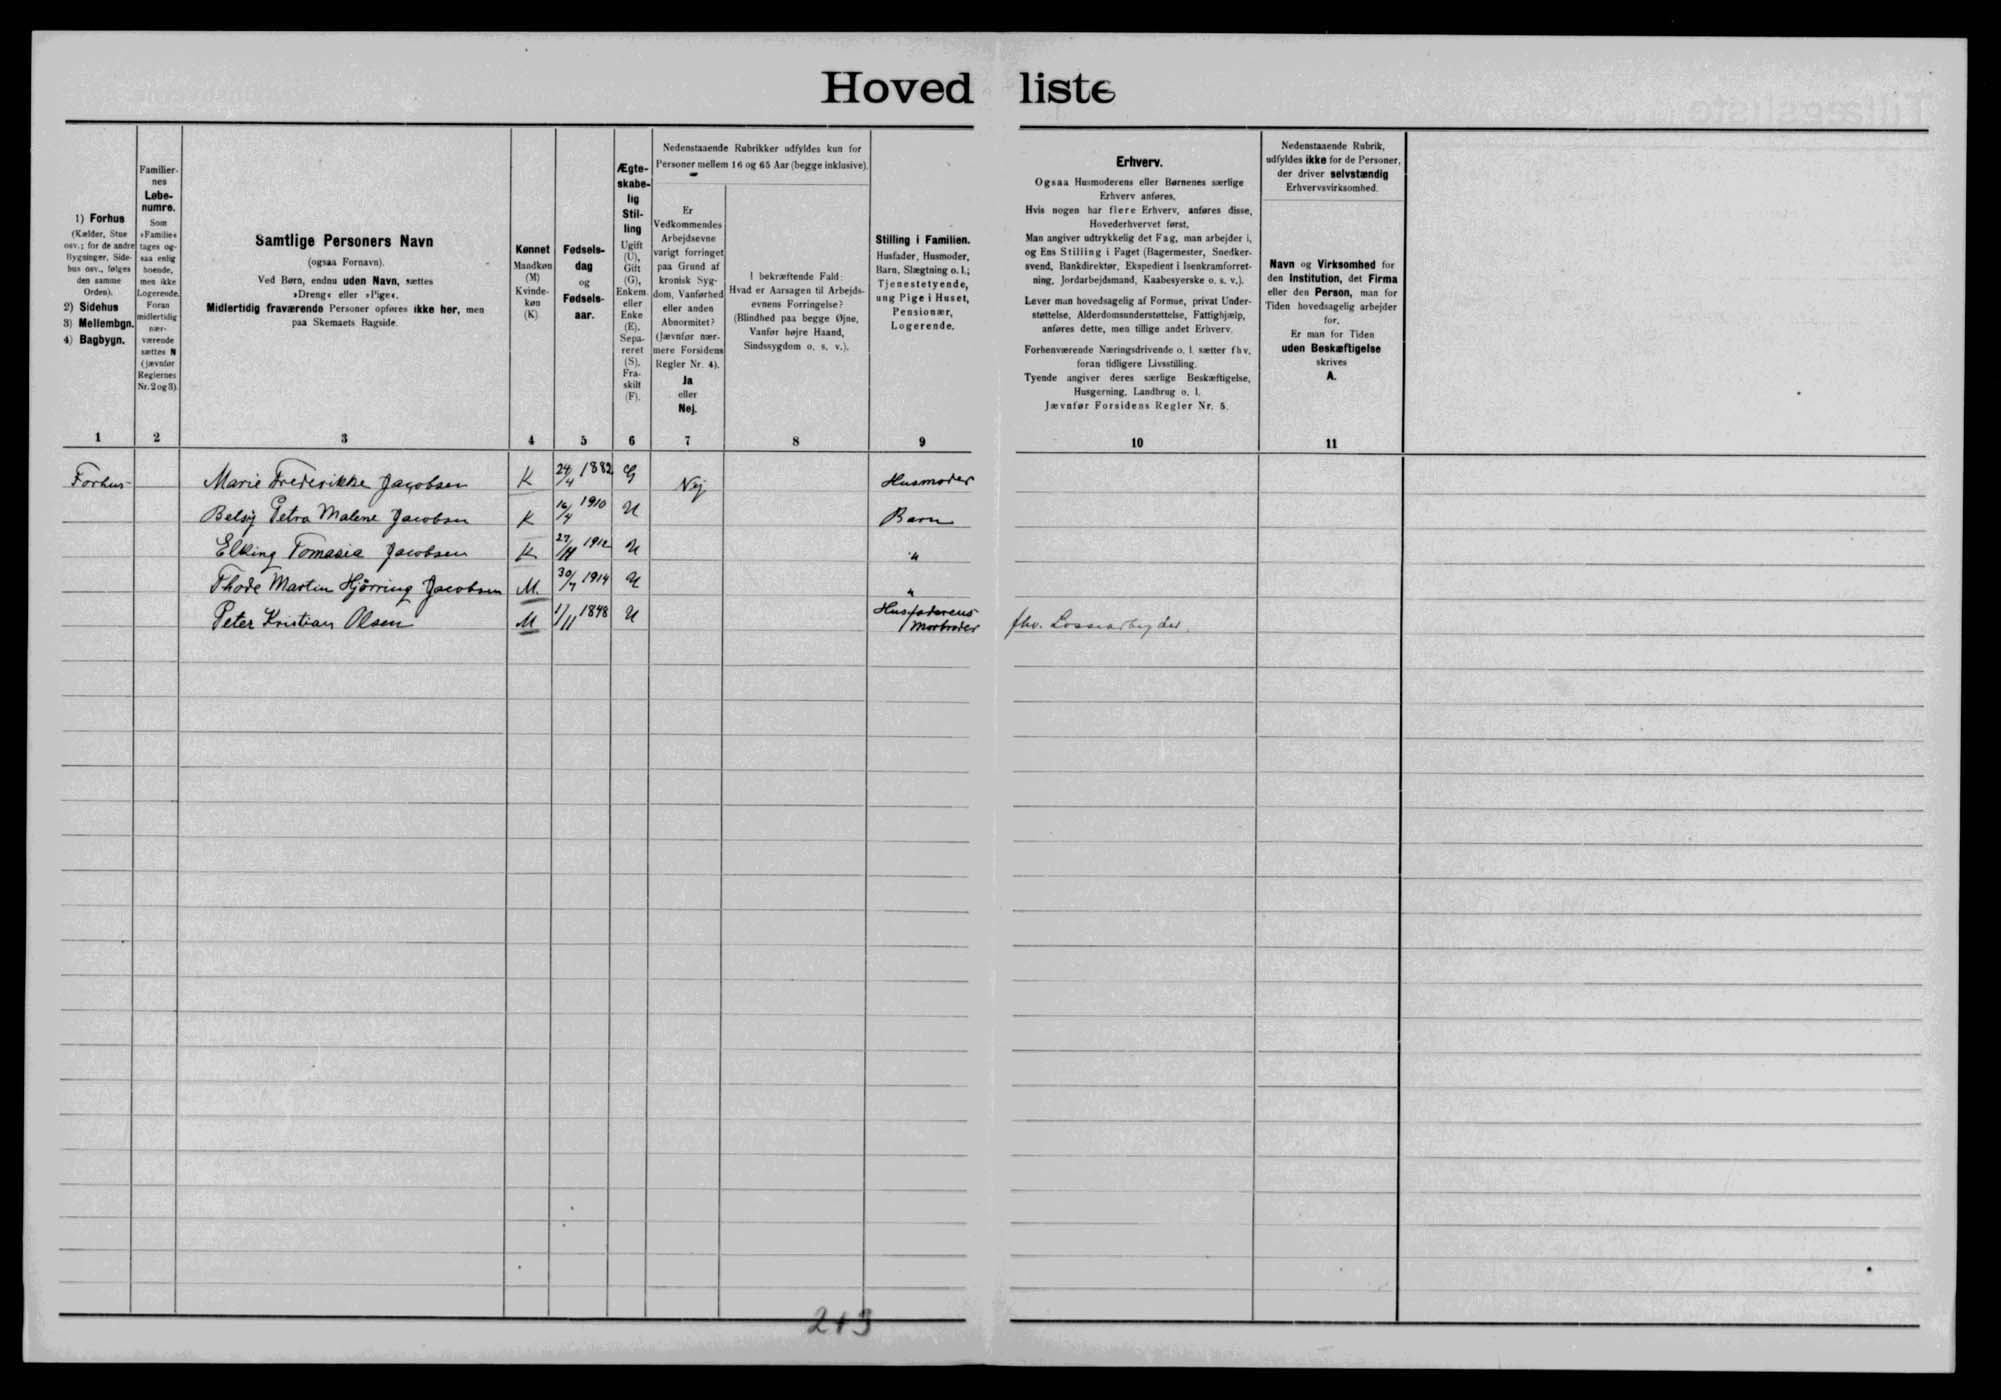 Hovedliste
1) Forhus
(Kælder, Stue
osv.; for de andre
Bygninger, Side-
hus osv., følges
den samme
Orden).
2) Sidehus
3) Mellembgn.
4) Bagbygn.
Familier-
nes
Løbe-
numre.
Som
»Familie«
tages og-
saa enlig
boende,
men ikke
Logerende.
Foran
midlertidig
nær-
værende
sættes N
(jævnfør
Reglernes
Nr. 2 og 3).
Samtlige Personers Navn
(ogsaa Fornavn).
Ved Børn, endnu uden Navn, sættes
»Dreng« eller »Pige«.
Midlertidig fraværende Personer opføres ikke her, men
paa Skemaets Bagside.
Kønnet
Mandkøn
(M)
Kvinde-
køn
(K)
Fødsels-
dag
og
Fødsels-
aar.
Ægte-
skabe-
lig
Stil-
ling
Ugift
(U),
Gift
(G),
Enkem.
eller
Enke
(E),
Sepa-
reret
(S),
Fra-
skilt
(F).
Nedenstaaende Rubrikker udfyldes kun for
Personer mellem 16 og 65 Aar (begge inklusive).
Er
Vedkommendes
Arbejdsevne
varigt forringet
paa Grund af
kronisk Syg-
dom, Vanførhed
eller anden
Abnormitet?
(Jævnfør nær-
mere Forsidens
Regler Nr. 4).
Ja
eller
Nej.
I bekræftende Fald:
Hvad er Aarsagen til Arbejds-
evnens Forringelse?
(Blindhed paa begge Øjne,
Vanfør højre Haand,
Sindssygdom o. s. v.).
Stilling i Familien.
Husfader, Husmoder,
Barn, Slægtning o. l.;
Tjenestetyende,
ung Pige i Huset,
Pensionær,
Logerende.
Erhverv.
Ogsaa Husmoderens eller Børnenes særlige
Erhverv anføres.
Hvis nogen har flere Erhverv, anføres disse,
Hovederhvervet først.
Man angiver udtrykkelig det Fag, man arbejder i,
og Ens Stilling i Faget (Bagermester, Snedker-
svend, Bankdirektør, Ekspedient i Isenkramforret-
ning, Jordarbejdsmand, Kaabesyerske o. s. v.).
Lever man hovedsagelig af Formue, privat Under-
støttelse, Alderdomsunderstøttelse, Fattighjælp,
anføres dette, men tillige andet Erhverv.
Forhenværende Næringsdrivende o. l. sætter fhv.
foran tidligere Livsstilling.
Tyende angiver deres særlige Beskæftigelse,
Husgerning, Landbrug o. l.
Jævnfør Forsidens Regler Nr. 5.
Nedenstaaende Rubrik,
udfyldes ikke for de Personer,
der driver selvstændig
Erhvervsvirksomhed.
Navn og Virksomhed for
den Institution, det Firma
eller den Person, man for
Tiden hovedsagelig arbejder
for.
Er man for Tiden
uden Beskæftigelse
skrives
A.
1 2 3 4 5 6 7 8 9 10 11
Forhus Marie Frederikke Jacobsen K 24/4 1882 G Nej Husmoder
Betsy Petra Malene Jacobsen K 16/4 1910 U Barn
Elking Tomasia Jacobsen K 27/11 1912 U "
Thode Martin Hjørring Jacobsen M. 30/7 1914 U "
Peter Kristian Olsen M 1/11 1848 U Husfaderens
Morbroder fhv. Lossearbejder.
2+3